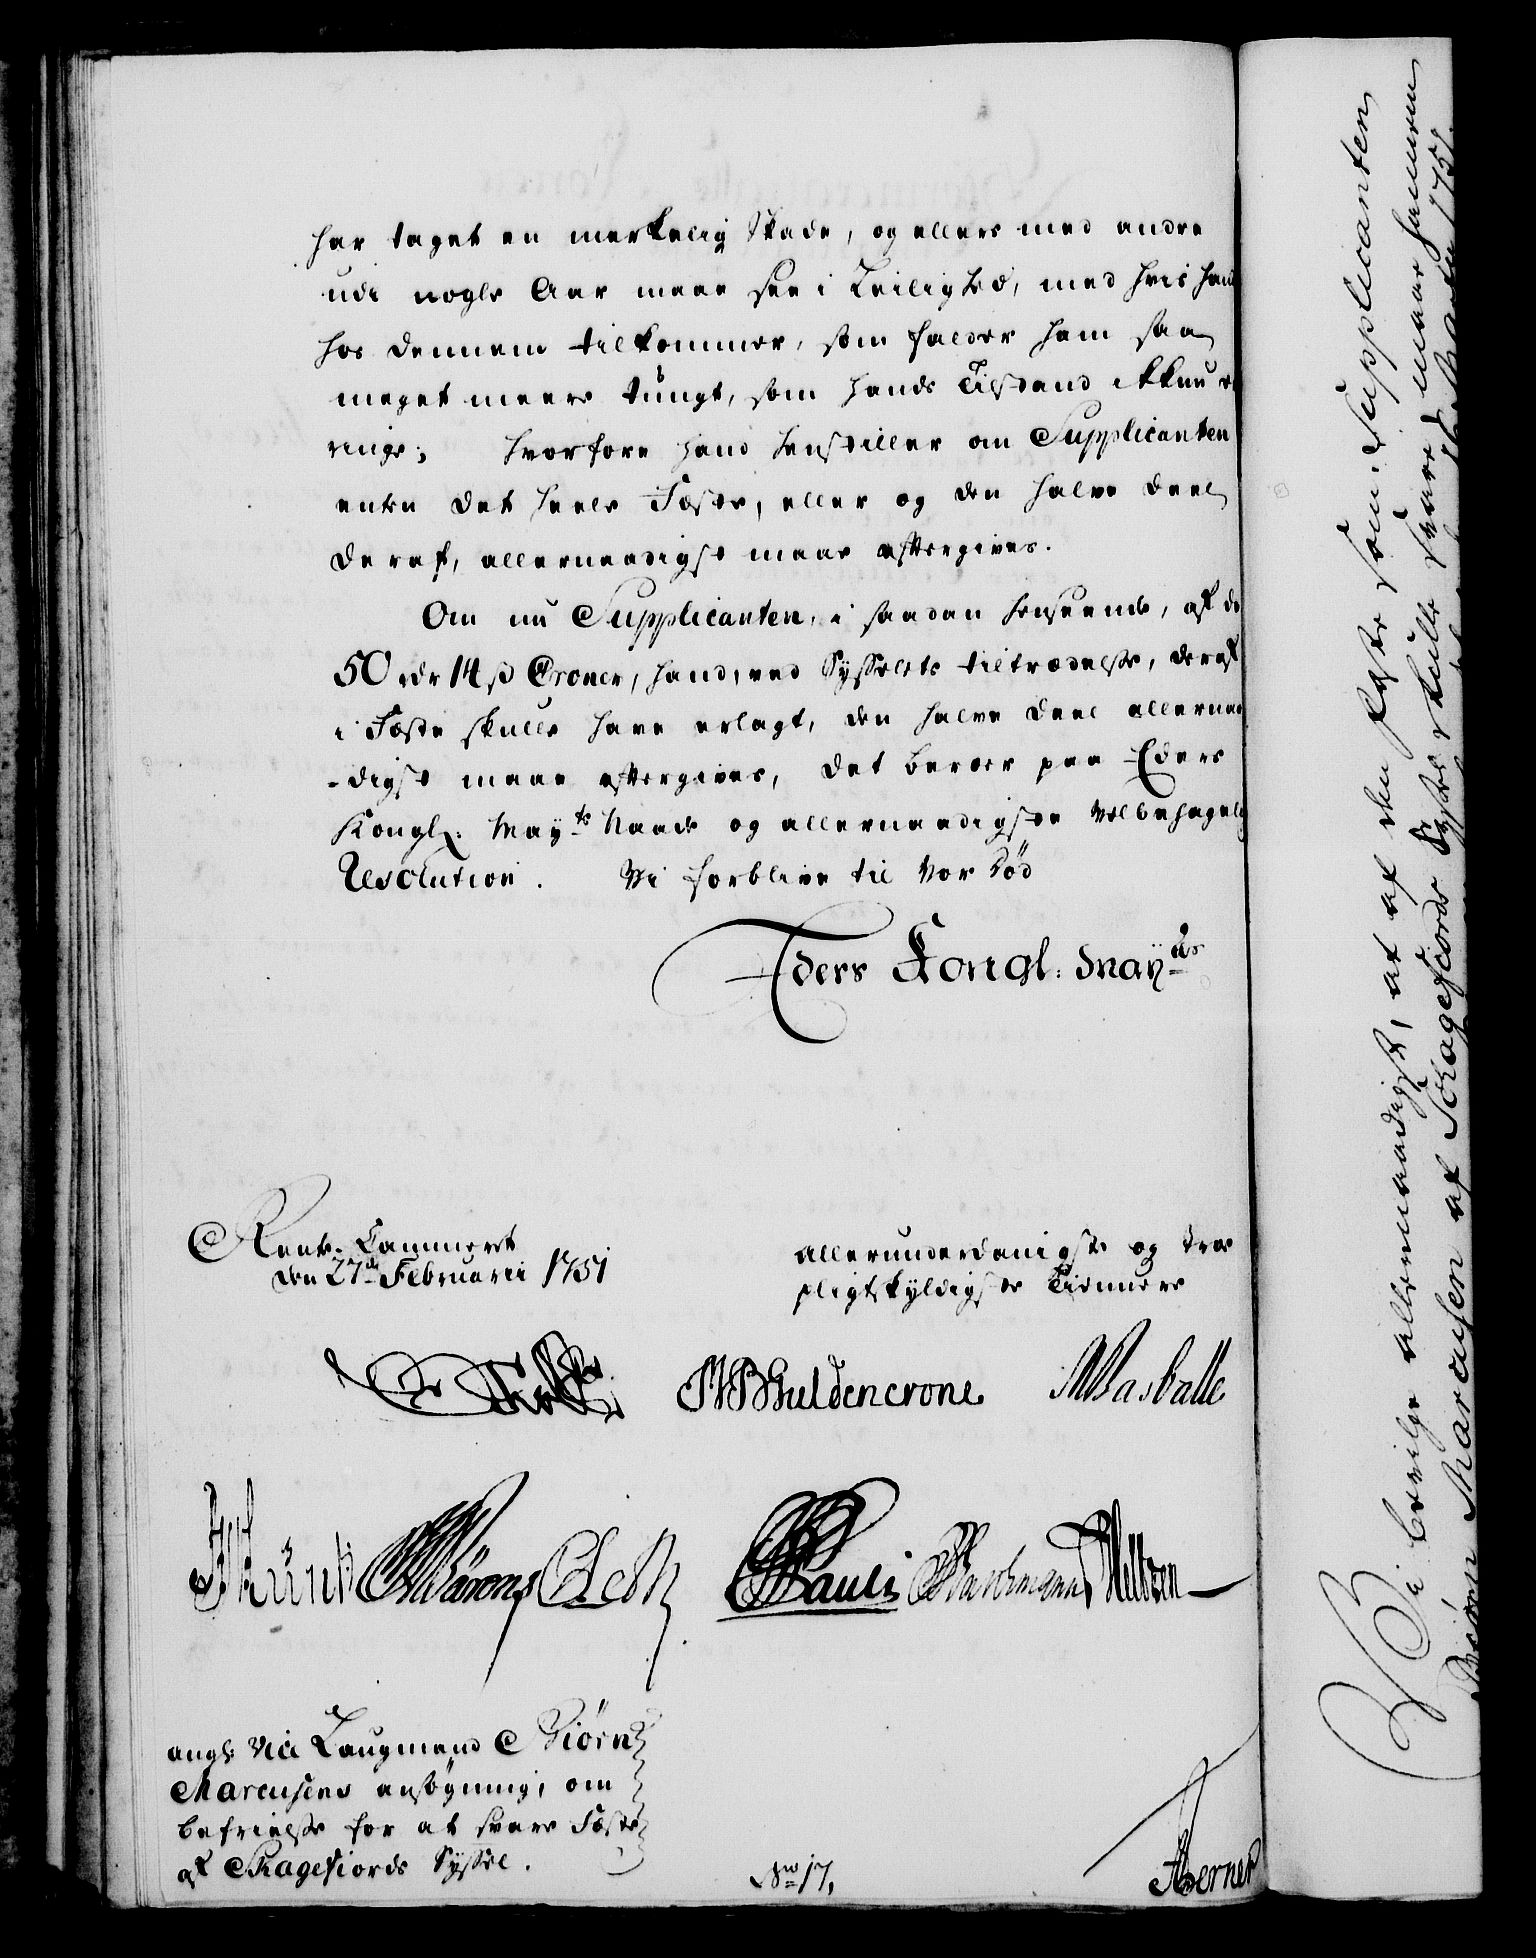 har taget en merkelig Skade, og ellers med andre
udi nogle Aar mere see i Leilighed, med hvis hand
hos dennem tilkommer, som falder ham saa
meget meere tungt, som hands Tilstand ikkun er
ringe; hvorfore hand henstiller om Supplicanten
enten det heele Fæste, eller og den halve deel
deraf, allernaadigst maae eftergives.
Om nu Supplicanten, i saadan henseende, af de
50 rdr 14 ß Croner, hand, ved Sysselets tiltrædelse, deraf
i Fæste skulle have erlagt, den halve deel allernaa
-digst maae eftergives, det beroer paa Eders
Kongl: May.ts Naade og allernaadigste velbehagelig
Resolution. Vi forblive til vor Død
Eders Kongl: May.ts
Rente-Cammeret
den 27de Februarii 1751
allerunderdanigste og troe
pligtskyldigste Tienere
MB Guldencrone
Pauli
angl: Vice Laugmand Biørn
Marcusens ansøgning, om
befrielse for at svare Fæste
af Skagefiords Syssel.
No 17,
Vi bevilge allernaadigst, at af den Fæste som Supplicanten
Biørn Marcusen af Skagefiords Syssel skulle svare, maae hannem
1751.